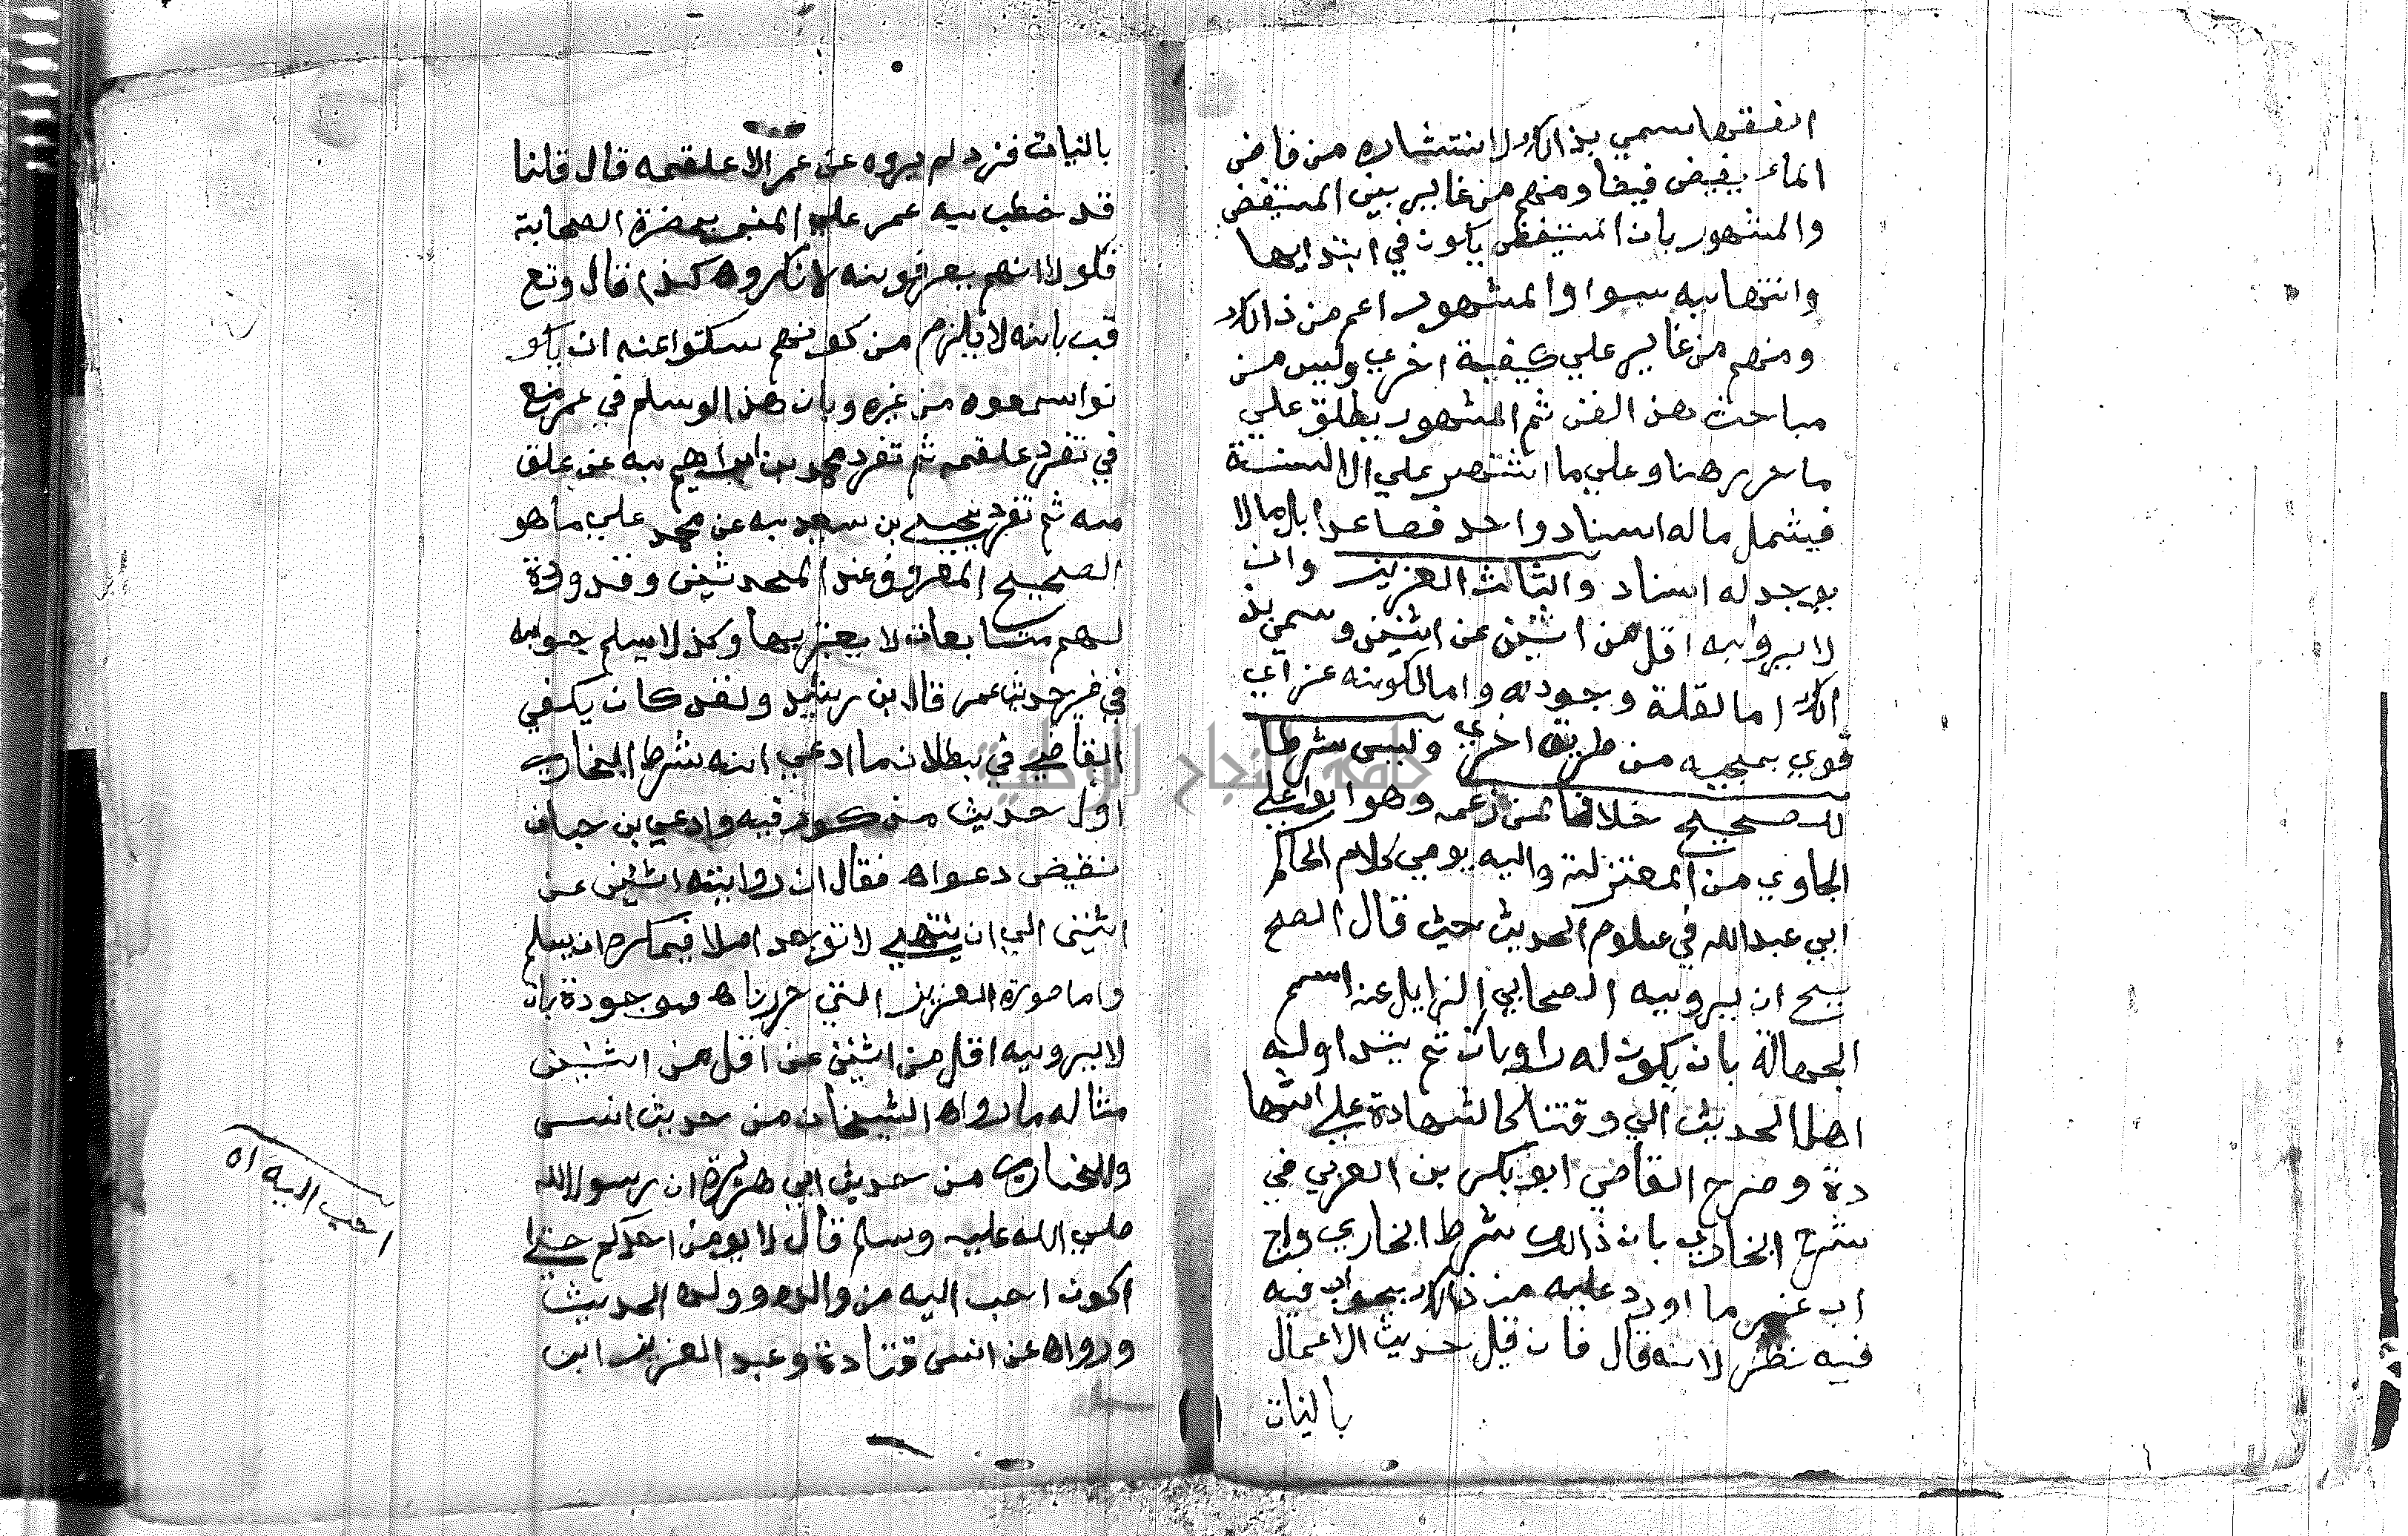 الفقها سمي بذالك لانتشاره من فاض
الماء يفيض فيضا ومنهم من غاير بين المستفيض
والمشهور بان المستفيض يكون في ابتدايها
وانتهايه سوا والمشهور اعم من ذالك
ومنهم من غاير علي كيفية اخري وليس من
مباحث هذ الفن ثم المشهور يطلق علي
ما حرر هنا وعلي ما اشتهر علي الالسنة
فيشمل ما له اسناد واحد فصاعدا بل ما لا
يوجد له اسناد والثالث العزيز وان
لا يرويه اقل من اثنين عن اثنين وسمي بذ
الك اما لقلة وجوده واما لكونه عز اي
قوي بمجييه من طريق اخري وليس شرطا
للصحيح خلافا لمن زعمه وهو ابو علي
الجاوي من المعتزلة واليه يومي كلام الحاكم
ابي عبد الله في علوم الحديث حيث قال الصح
يح ان يرويه الصحابي الزايل عنه اسم
الجهالة بان يكون له راويان ثم يتداوله
اهل الحديث الي وقتنا كالشهادة علي الشها
دة وصرح القاضي ابو بكر بن العربي في
شرح البخاري بان ذالك شرط البخاري واج
اب عنه ما اورد عليه من ذالك بجواب فيه
فيه نظر لانه قال فان قيل حديث الاعمال
بالنيات
بالنيات فرد لم يروه عن عمر الا علقمه قال قلنا
قد خطب به عمر علي المنبر بحضرة الصحابة
فلولا انهم يعرفونه لانكروه كذا قال وتع
قب بانه لا يلزم من كونهم سكتوا عنه ان يكو
نوا سمعوه من غيره وبان هذا لو سلم في عمر منع
في تفرد علقمه ثم تفرد محمد بن ابراهيم به عن علق
مه ثم تفرد يحيي بن سعيد به عن محمد علي ما هو
الصحيح المعروف عند المحدثين وقد وردة
لهم متابعات لا يعتبر بها وكذ لا يسلم جوابه
في غير حديث عمر قال بن رشيد ولقد كان يكفي
القاضي في بطلان ما ادعي انه شرط البخاري
اول حديث مذكور فيه وادعي بن حبان
نقيض دعواه فقال ان رواية اثنين عن
اثنين الي ان ينتهي لا توجد اصلا فيمكن ان يسلم
واما صورة العزيز التي حررناه موجودة بان
لا يرويه اقل من اثنين عن اقل من اثنين
مثاله ما رواه الشيخان من حديث انس
والبخاري من حديث ابي هريرة ان رسول الله
صلي الله عليه وسلم قال لا يومن احدكم حتي
اكون احب اليه من والده وولده الحديث
ورواه عن انس قتادة وعبد العزيز ابن
احب اليه اه
جامعة النجاح الوطنية